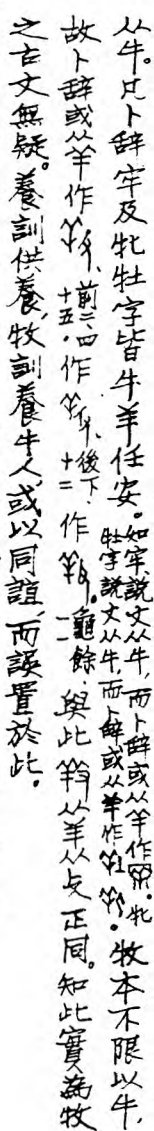 从牛。凡卜辭牢及牝牡字皆牛羊任安。如牢,說文从牛,而卜辭或从羊作。牝牡字說文从牛,而卜辭或从羊作。牧本不限以牛,
故卜辭或从羊作、前二、四十五。作、後下、十二作。龜餘一與此从羊从攴正同。知此實為牧
之古文無疑。養訓供養,牧訓養牛人或以同誼,而誤置於此。